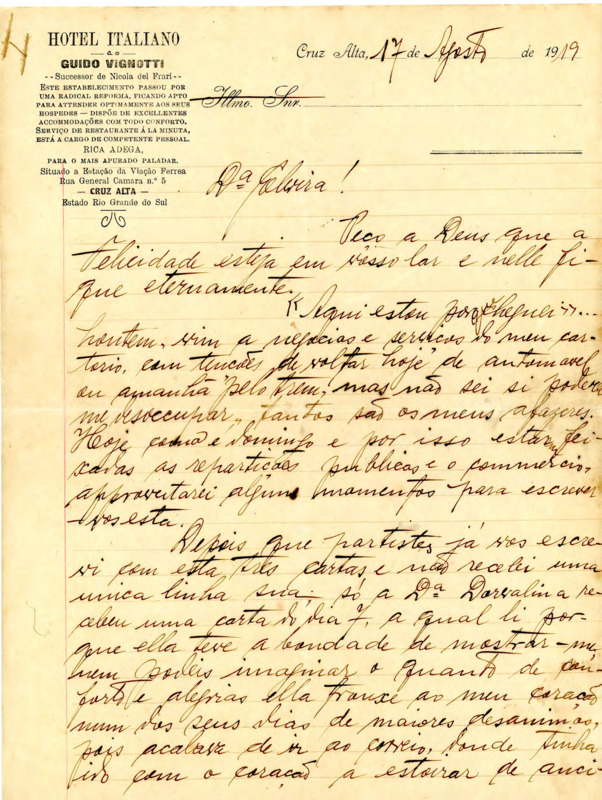 HOTEL ITALIANO
DE
GUIDO VIGNOTTI
--Successor de Nicola del Frari--
ESTE ESTABELECIMENTO PASSOU POR
UMA RADICAL REFORMA, FICANDO APTO
PARA ATTENDER OPTIMAMENTE AOS SEUS
HOSPEDES — DISPÕE DE EXCELLENTES
ACCOMMODAÇÕES COM TODO CONFORTO.
SERVIÇO DE RESTAURANTE Á LA MINUTA,
ESTÁ A CARGO DE COMPETENTE PESSOAL.
RICA ADEGA,
PARA O MAIS APURADO PALADAR.
Situado a Estação da Viação Ferrea
Rua General Camara n.º 5
— CRUZ ALTA —
Estado Rio Grande do Sul
Cruz Alta, 17 de Agosto de 1919
Illmo. Snr.
Dª Elvira!
Peço a Deus que a
Felicidade esteja em vosso lar e nelle fi-
que eternamente.
Aqui estou cheguei
hontem, vim a negocios e serviços do meu car-
torio, com tenções de voltar hoje de automovel
ou amanhã pelo trem, mas não sei si poderei
me desoccupar, tantos são os meus afazeres.
Hoje como é domingo e por isso estarem fei-
xadas as repartições publicas e o commercio,
approveitarei alguns momentos para escrever
-vos esta.
Depois que partistes, já vos escre-
vi com esta três cartas e não recebi uma
unica linha sua; só a Dª Dorvalina re-
cebeu uma carta do dia 7, a qual li por-
que ella teve a bondade de mostrar-me,
nem podeis imaginar o quanto de con-
forto e alegrias ella trouxe ao meu coração
num dos seus dias de maiores desanimos,
pois acabava de vir ao correio, donde tinha
ido com o coração a estourar de anci-